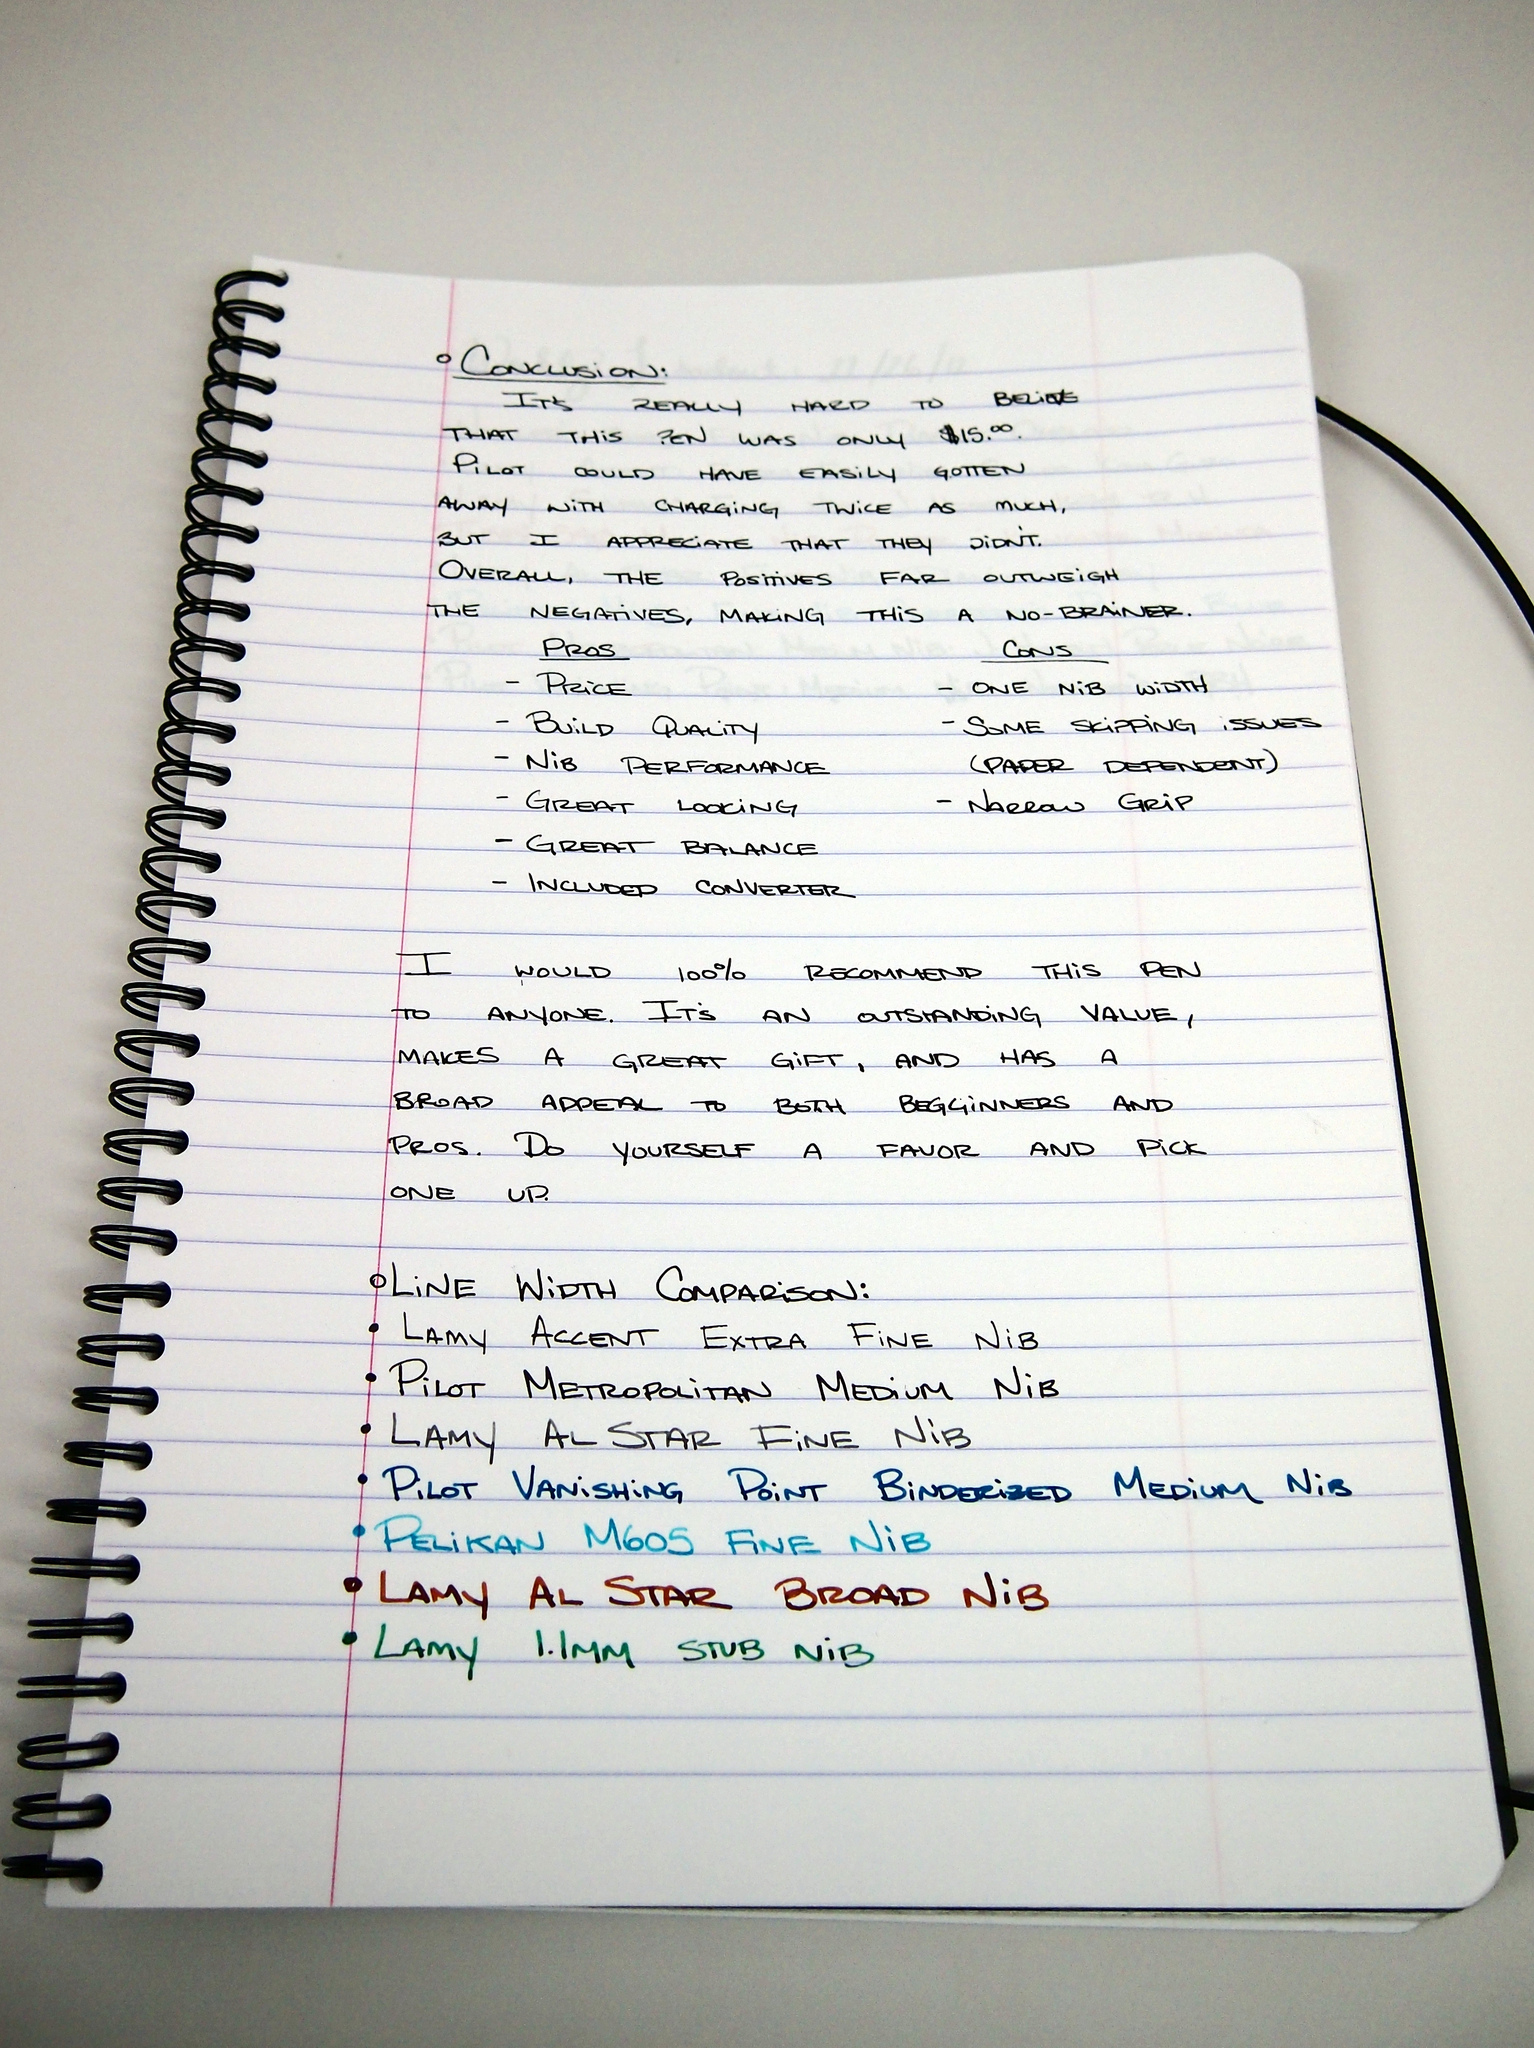 Conclusion:
It's really hard to belive
that this pen was only $15.00.
Pilot could have easily gotten
away with charging twice as much,
but I appreciate that they didn't.
Overall, the positives far outweigh
the negatives, making this a no-brainer.
Pros Cons
- Price - One nib width
- Build Quality - Some skipping issues
- Nib Performance (paper dependent)
- Great looking - Narrow Grip
- Great balance
- Included converter
I would 100% recommend this pen
to anyone. It's an outstanding value,
makes a great gift, and has a
broad appeal to both begginners and
pros. Do yourself a favor and pick
one up.
Line Width Comparison:
• Lamy Accent Extra Fine Nib
• Pilot Metropolitan Medium Nib
• Lamy Al Star Fine Nib
• Pilot Vanishing Point Binderized Medium Nib
• Pelikan M605 Fine Nib
• Lamy Al Star Broad Nib
• Lamy 1.1mm stub nib